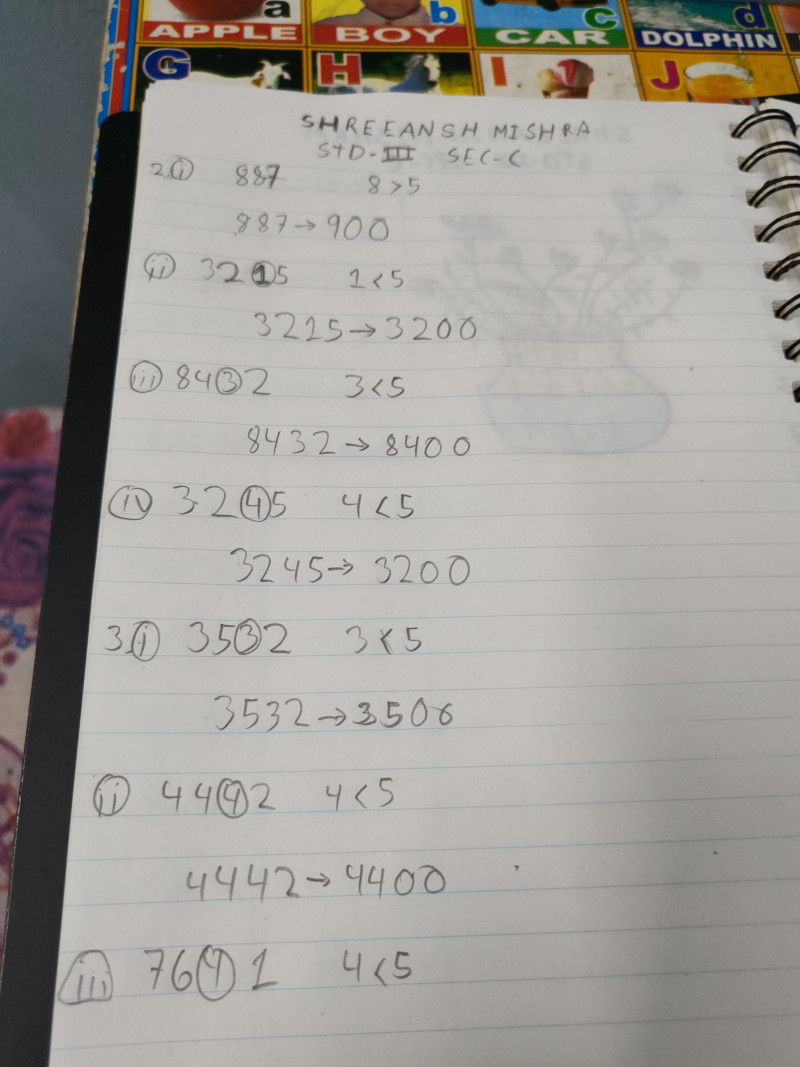 a b c d
APPLE BOY CAR DOLPHIN
G H I J
SHREEANSH MISHRA
STD-III SEC-C
2.(i) 887 8>5
887→900
(ii) 3215 1<5
3215→3200
(iii) 8432 3<5
8432→8400
(iv) 3245 4<5
3245→3200
3.(i) 3532 3<5
3532→3500
(ii) 4442 4<5
4442→4400
(iii) 7641 4<5